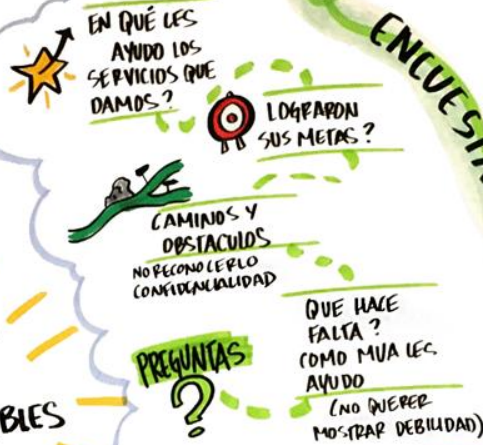 EN QUÉ LES
AYUDO LOS
SERVICIOS QUE
DAMOS?
LOGRARON
SUS METAS?
CAMINOS Y
OBSTACULOS
NO RECONOCERLO
CONFIDENCIALIDAD
QUE HACE
FALTA?
COMO MUA LES
AYUDO
(NO QUERER
MOSTRAR DEBILIDAD)
PREGUNTAS
?
BLES